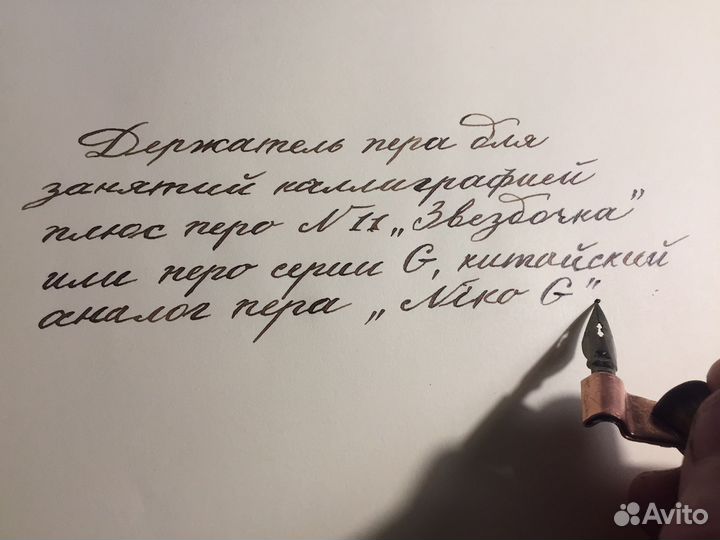 Держатель пера для
занятий каллиграфией
плюс перо N 11 „Звездочка"
или перо серии G, китайский
аналог пера „Niko G"
Avito